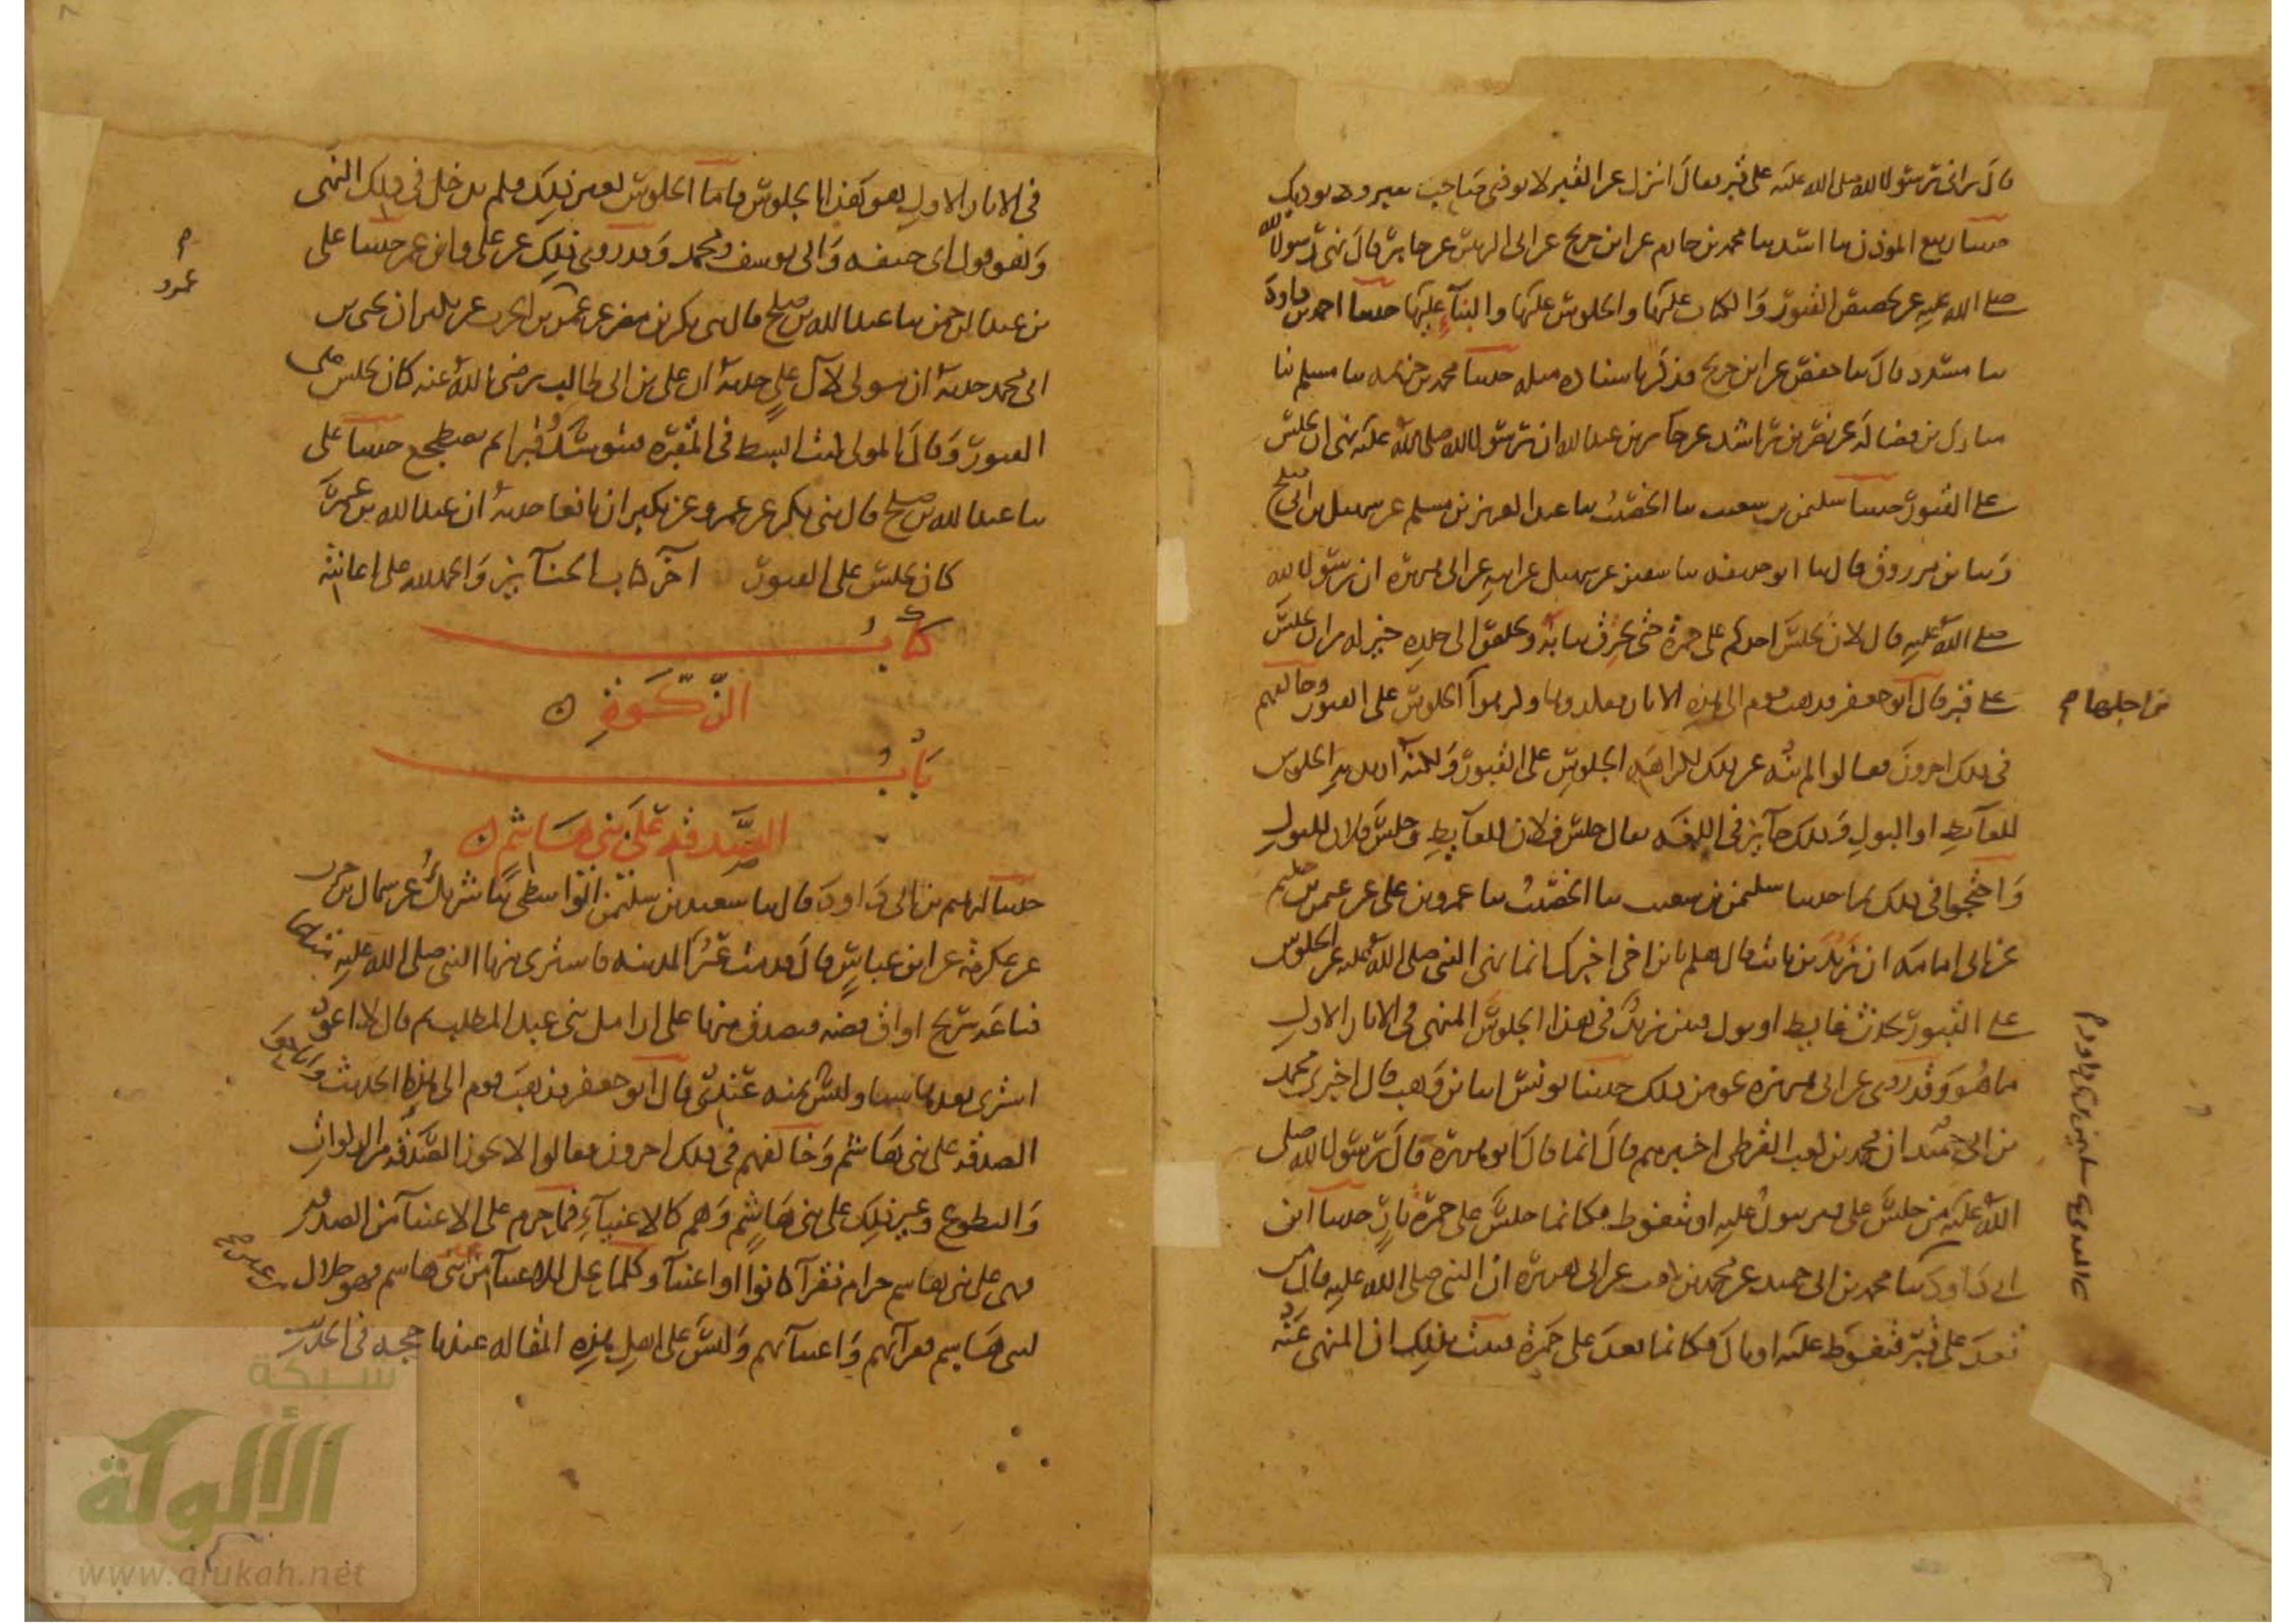 قال رانى رسول الله صلى الله عليه على قبر فقال انزل عن القبر لا توذى صاحب القبر ولا يوذيك
حدثنا ربيع الموذن ثنا اسد ثنا محمد بن خازم عن ابن جريج عن ابى الزبير عن جابر قال نهى رسول الله
صلى الله عليه عن تجصيص القبور والكتاب عليها والجلوس عليها والبنآء عليها حدثنا احمد بن داود
ثنا مسدد قال ثنا حفص عن ابن جريج فذكر باسناده مثله حدثنا محمد بن خزيمه ثنا مسلم ثنا
مبارك بن فضاله عن نصر بن راشد عن جابر بن عبد الله ان رسول الله صلى الله عليه نهى ان يجلس
على القبور حدثنا سليمن بن شعيب ثنا الخصيب ثنا عبد العزيز بن مسلم عن سهيل بن ابى صلح
وثنا بن مرزوق قال ثنا ابو حذيفه ثنا سفين عن سهيل عن ابيه عن ابى هريره ان رسول الله
صلى الله عليه قال لان يجلس احدكم على جمرة حتى تحرق ثيابه وتخلص الى جلده خير له من ان يجلس
على قبر قال ابو جعفر فذهب قوم الى هذه الاثار فقلدوها وكرهوا الجلوس على القبور وخالفهم
من اجلها م
فى ذلك اخرون فقالوا لم ينه عن ذلك لكراهه الجلوس على القبور ولكنه اريد به الجلوس
للغآيط او البول وذلك جآيز فى اللغه يقال جلس فلان للغآيط وجلس فلان للبول
واحتجوا فى ذلك بما حدثنا سليمن بن شعيب ثنا الخصيب ثنا عمرو بن على عن عثمن بن حكيم
عن ابى امامه ان زيد بن ثابت قال هلم يا بن اخى اخبرك انما نهى النبى صلى الله عليه عن الجلوس
على القبور لحدث غايط او بول فبين زيد فى هذا الجلوس المنهى فى الاثار الاول
ما هو وقد روى عن ابى هريره نحو من ذلك حدثنا يونس انا بن وهب قال اخبرى محمد
بن ابى حميد ان محمد بن كعب القرظى اخبرهم قال انما قال ابو هريرة قال رسول الله صلى
الله عليه من جلس على قبر يبول عليه او يتغوط فكانما جلس على جمرة نار حدثنا ابن
ابى داود ثنا محمد بن ابى حميد عن محمد بن كعب عن ابى هريرة ان النبى صلى الله عليه قال من
قعد على قبر فتغوط عليه او بال فكانما قعد على جمرة فثبت بذلك ان المنهى عنه
فى الاثار الاول هو هذا الجلوس فاما الجلوس لغير ذلك فلم يدخل فى ذلك النهى
وهو قول ابى حنيفه وابى يوسف ومحمد وقد روى ذلك عن على وابن عمر حدثنا على
م
عمرو
بن عبد الرحمن ثنا عبد الله بن صلح قال ثنى بكر بن مضر عن عمرو بن الحرث عن بكير ان يحيى بن
ابى محمد حدثه ان مولى لآل على حدثه ان على بن ابى طالب رضى الله عنه كان يجلس على
القبور وقال المولى كنت ابسط فى المقبره فيتوسد قبرا ثم يضطجع حدثنا على
ثنا عبد الله بن صلح قال ثنى بكر عن عمرو عن بكير ان نافعا حدثه ان عبد الله بن عمر
كان يجلس على القبور اخر كتاب الجنآيز والحمد لله على اعانته
كتاب
الزكوة
باب
الصدقة على بنى هاشم
حدثنا ابرهيم بن ابى داود قال ثنا سعيد بن سليمن الواسطى ثنا شريك عن سماك بن حرب
عن عكرمة عن ابن عباس قال قدمت عير المدينه فاشترى منها النبى صلى الله عليه متاعا
فباعه بربح اواق فضه فتصدق منها على ارامل بنى عبد المطلب ثم قال لا اعود
اشترى بعدها شيا وليس ثمنه عندى قال ابو جعفر فذهب قوم الى هذا الحديث واباحوا
الصدقه على بنى هاشم وخالفهم فى ذلك اخرون فقالوا لا يجوز الصدقه من الزكوات
والتطوع وغير ذلك على بنى هاشم وهم كالاغنيآء فما حرم على الاغنيآ من الصدقه
فهى على بنى هاشم حرام فقرآ كانوا او اغنيآ وكلما يحل للاغنيآ من بنى هاشم فهو حلال
لبنى هاشم فقرآئهم واغنيآئهم وليس على اهل هذه المقاله عندنا حجه فى الحديث
شبكة
الألوكة
www.alukah.net